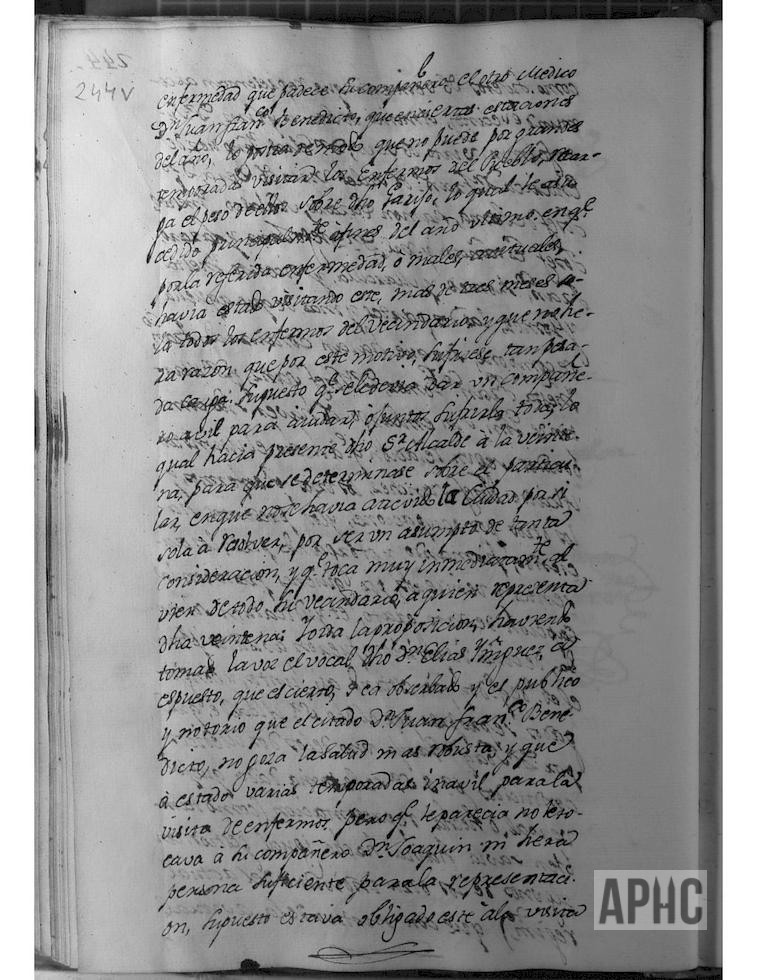 244v
enfermedad que padece su compañero el otro Medico
Dn Juan Franco Benedicto, que en ciertas estaciones
del año, lo postra de modo que no puede por grandes
temporadas visitar los enfermos del Pueblo, recar-
ga el peso de ellos sobre dho Garijo, lo qual le a su-
cedido principalmte á fines del año ultimo, en qe
por la referida enfermedad, o males, avituales,
havia estado visitando este, mas de tres meses a-
la todos los enfermos del Vecindario, y que no he-
ra razon que por este motivo, sufriese tan pesa-
da carga. Supuesto qe se le devia dar un compañe-
ro avil para ayudar, o juntos sufrirla toda; lo
qual hacia presente dho Sr Alcalde à la veinte-
na, para que se determinase sobre el particu-
lar, en que no se havia atrevido la Ciudad por si
sola à resolver, por ser un asumpto de tanta
consideracion, y qe toca muy inmediatamte al
vien de todo su vecindario, a quien representa
dha veintena; Y oida la proposicion, haviendo
tomado la voz el vocal, dho Dn Elias Yñiguez, à
espuesto, que es cierto, se ea obserbado y es publico
y notorio que el citado Dn Juan Franco Bene-
dicto, no goza la salud mas robusta, y que
à estado varias temporadas inavil para la
visita de enfermos, pero qe le parecia no le to-
cava à su compañero Dn Joaquin ni hera
persona suficiente para la representaci-
on, supuesto estava obligado este à la visita
APHC